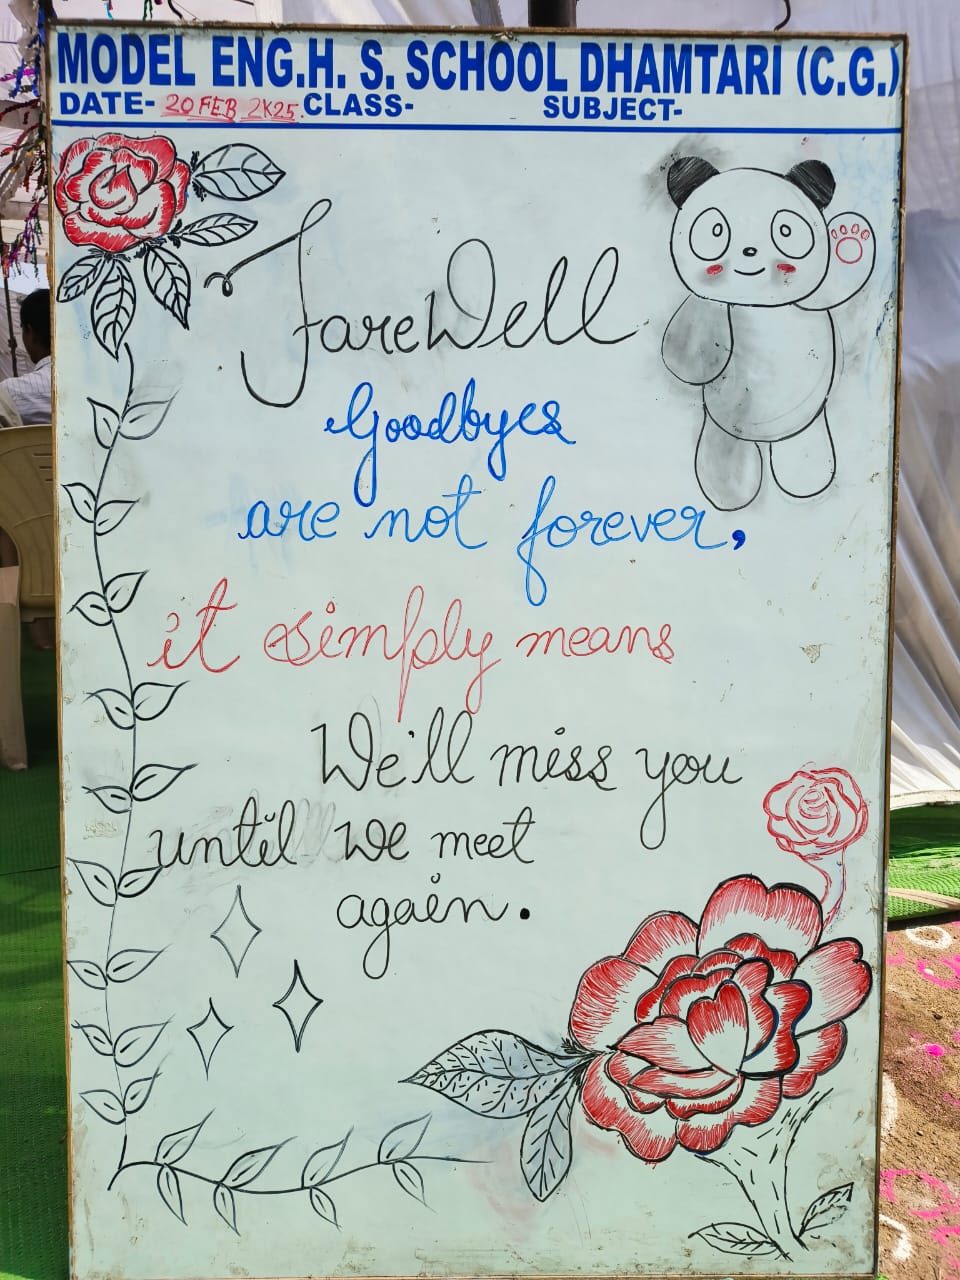 MODEL ENG.H. S. SCHOOL DHAMTARI (C.G.)
DATE- 20 FEB 2K25. CLASS- SUBJECT-
FareWell
Goodbyes
are not forever,
it simply means
We'll miss you
until We meet
again.